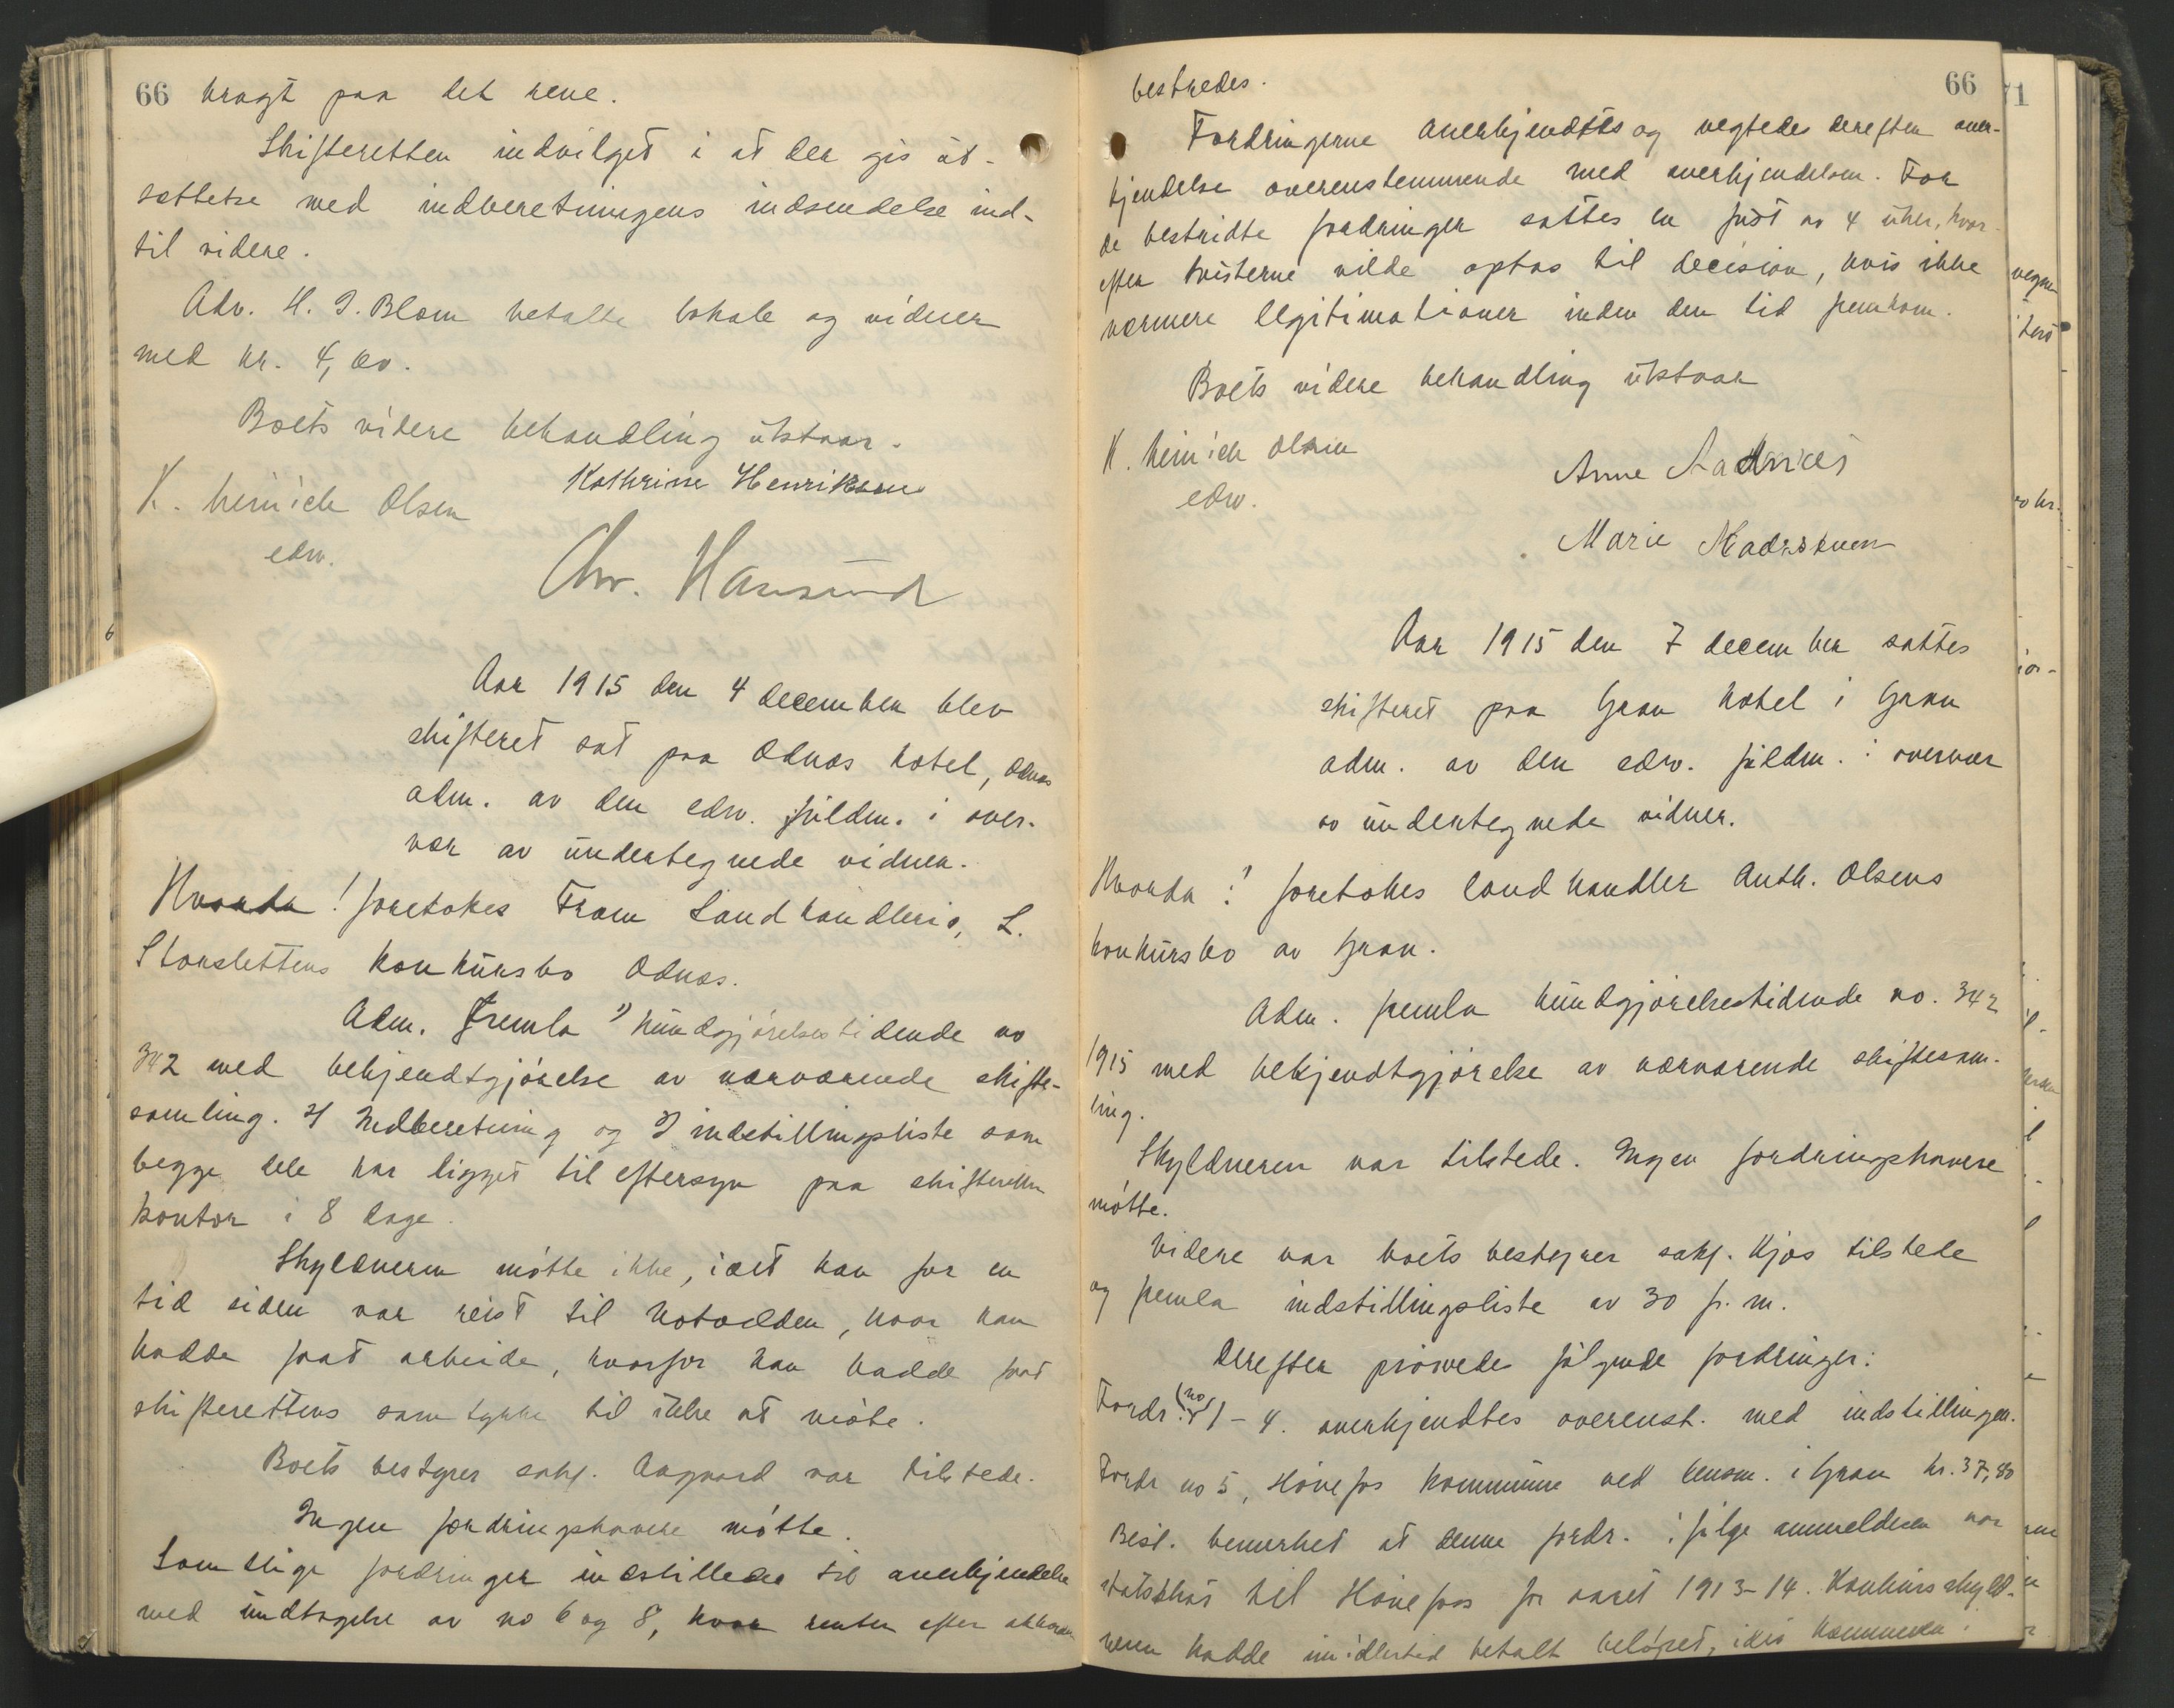 66 bragt paa det rene.
Skifteretten indvilget i at der gis ut-
sættelse med indberetningens indsendelse ind-
til videre.
Adv. H. J. Blom betalte lokale og vidner
med kr. 4,00.
Boets videre behandling utstaar.
K. Heinich Olsen Kathrine Henriksen
edsv.
Chr. Hansund
Aar 1915 den 4 december blev
skifteret sat paa Odnæs hotel, Odnæs
adm. av den edsv. fuldm. i over-
vær av undertegnede vidner.
Hvorda! foretokes Fram Landhandleri, L.
Storslettens konkursbo Odnæs.
Adm. fremla 1) kundgjørelsestidende no
342 med bekjendtgjørelse av nærværende skifte-
samling. 2) Indberetning og 3) indstillingsliste som
begge dele har ligget til eftersyn paa skifterettens
kontor i 8 dage.
Skyldneren møtte ikke, idet han for en
tid siden var reist til Notodden, hvor han
hadde faat arbeide, hvorfor han hadde faat
skifterettens samtykke til ikke at møte.
Boets bestyrer sakf. Aagaard var tilstede.
Ingen fordringshavere møtte.
Samtlige fordringer indstilledes til anerkjendelse
med undtagelse av no 6 og 8, hvor renter efter akkorden
bestredes. 66
Fordringerne anerkjendtes og negtedes derefter aner-
kjendelse overenstemmende med anerkjendelsen. For
de bestridte fordringer sattes en frist av 4 uker, hvor-
efter tvisterne vilde optas til decision, hvis ikke
nærmere legitimationer inden den tid fremkom.
Boets videre behandling utstaar
K. Heinich Olsen
edsv.
Anne
Marie
Aar 1915 den 7 december sattes
skifteret paa Gran hotel i Gran
adm. av den edsv. fuldm. i overvær
av undertegnede vidner.
Hvorda: foretokes landhandler Anth. Olsens
konkursbo av Gran.
Adm. fremla kundgjørelsestidende no. 342
1915 med bekjendtgjørelse av nærværende skiftesam-
ling.
Skyldneren var tilstede. Ingen fordringshavere
møtte.
Videre var boets bestyrer sakf. Kjos tilstede
og fremla indstillingsliste av 30 f. m.
Derefter prøvedes følgende fordringer:
Fordr. no 1-4. anerkjendtes overenst. med indstillingen.
Fordr no 5, Hønefos kommune ved lensm. i Gran kr. 37,80
Best. bemerket at denne fordr. ifølge anmeldelsen var
statsskat til Hønefos for aaret 1913-14. Konkursskyld-
neren hadde imidlertid betalt beløpet, idet kæmneren i